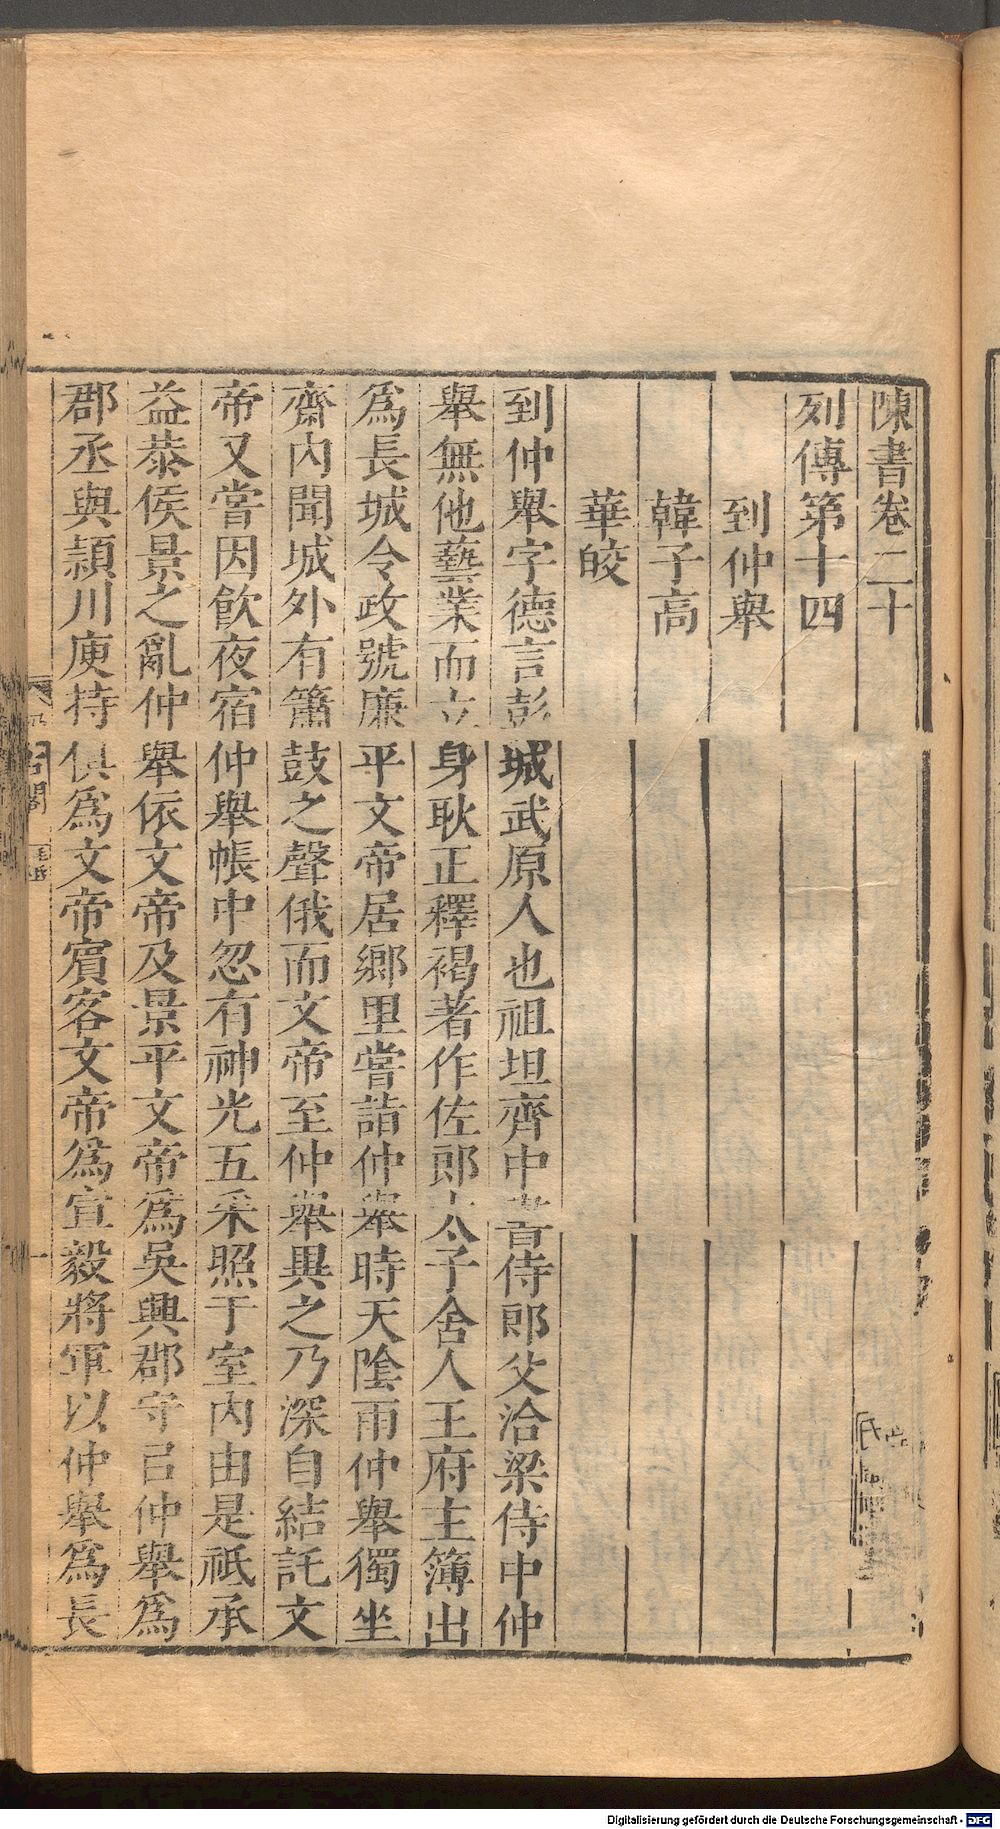 陳書卷二十
列傳第十四
到仲舉
韓子高
華皎
到仲舉字德言彭城武原人也祖坦齊中書侍郎父洽梁侍中仲
舉無他藝業而立身耿正釋褐著作佐郎太子舍人王府主簿出
爲長城令政號廉平文帝居鄉里嘗詣仲舉時天陰雨仲舉獨坐
齋內聞城外有簫鼓之聲俄而文帝至仲舉異之乃深自結託文
帝又嘗因飲夜宿仲舉帳中忽有神光五采照于室內由是祇承
益恭侯景之亂仲舉依文帝及景平文帝爲吳興郡守㠯仲舉爲
郡丞與潁川庾持俱爲文帝賓客文帝爲宣毅將軍以仲舉爲長
Digitalisierung gefördert durch die Deutsche Forschungsgemeinschaft - DFG